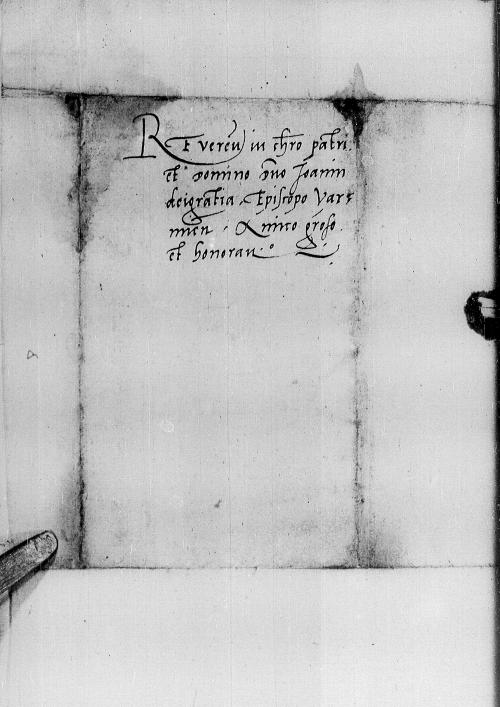 REveren) in chro patri.
et domino dno Joanni
dei gratia Episcopo Vars
mien. Amico groso
et honoran.